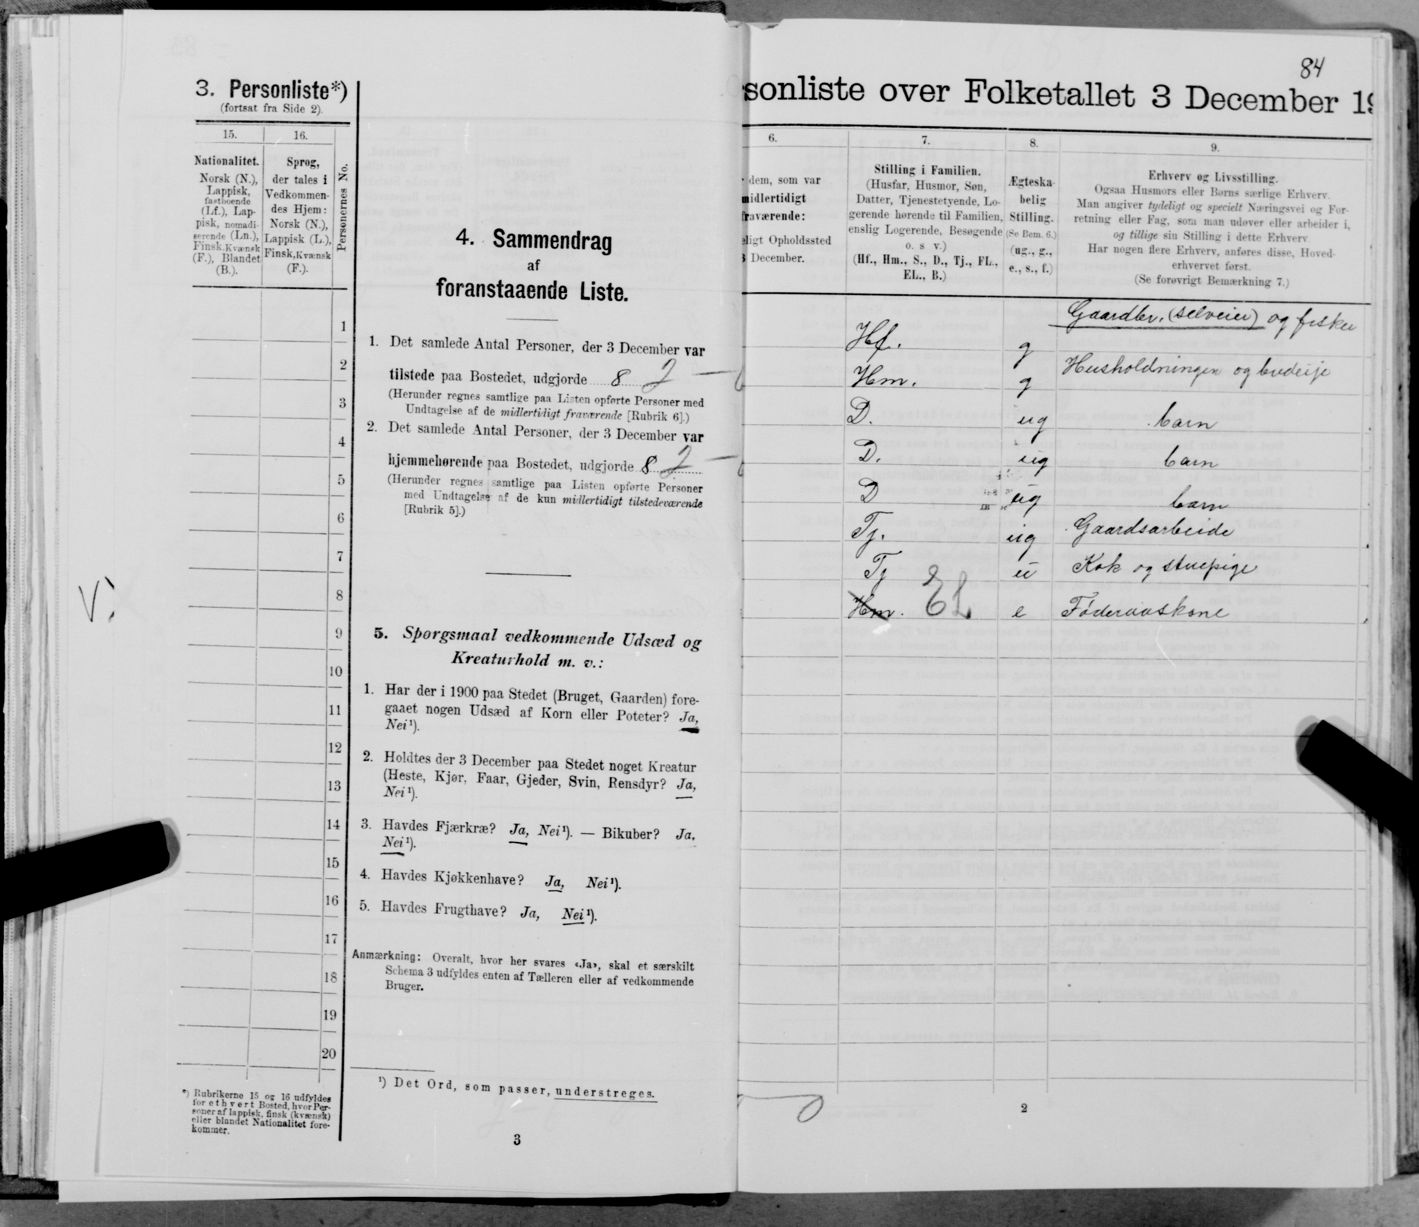 3. Personliste*)
(fortsat fra Side 2).
15.
16.
Nationalitet.
Norsk (N.),
Lappisk,
fastboende
(Lf.), Lap-
pisk, nomadi-
serende (Ln.),
Finsk, Kvænsk
(F.), Blandet
(B.).
Sprog,
der tales i
Vedkommen-
des Hjem:
Norsk (N.),
Lappisk (L.),
Finsk, Kvænsk
(F.).
Personernes No.
1
2
3
4
5
6
7
8
9
10
11
12
13
14
15
16
17
18
19
20
*) Rubrikerne 15 og 16 udfyldes
for ethvert Bosted, hvor Per-
soner af lappisk, finsk (kvænsk)
eller blandet Nationalitet fore-
kommer.
4. Sammendrag
af
foranstaaende Liste.
1. Det samlede Antal Personer, der 3 December var
tilstede paa Bostedet, udgjorde 8 2 —
(Herunder regnes samtlige paa Listen opførte Personer med
Undtagelse af de midlertidigt fraværende [Rubrik 6].)
2. Det samlede Antal Personer, der 3 December var
hjemmehørende paa Bostedet, udgjorde 8 2 —
(Herunder regnes samtlige paa Listen opførte Personer
med Undtagelse af de kun midlertidigt tilstedeværende
[Rubrik 5].)
5. Spørgsmaal vedkommende Udsæd og
Kreaturhold m. v.:
1. Har der i 1900 paa Stedet (Bruget, Gaarden) fore-
gaaet nogen Udsæd af Korn eller Poteter? Ja,
Nei¹).
2. Holdtes der 3 December paa Stedet noget Kreatur
(Heste, Kjør, Faar, Gjeder, Svin, Rensdyr? Ja,
Nei¹).
3. Havdes Fjærkræ? Ja, Nei¹). — Bikuber? Ja.
Nei¹).
4. Havdes Kjøkkenhave? Ja, Nei¹).
5. Havdes Frugthave? Ja, Nei¹).
Anmærkning: Overalt, hvor her svares «Ja», skal et særskilt
Schema 3 udfyldes enten af Tælleren eller af vedkommende
Bruger.
¹) Det Ord, som passer, understreges.
3
84
sonliste over Folketallet 3 December 19
6.
dem, som var
midlertidigt
fraværende:
eligt Opholdssted
3 December.
7.
Stilling i Familien.
(Husfar, Husmor, Søn,
Datter, Tjenestetyende, Lo-
gerende hørende til Familien,
enslig Logerende, Besøgende
o. s. v.)
(Hf., Hm., S., D., Tj., FL.,
EL., B.)
8.
Ægteska-
belig
Stilling.
(Se Bem. 6.)
(ug., g.,
e., s., f.)
9.
Erhverv og Livsstilling.
Ogsaa Husmors eller Børns særlige Erhverv.
Man angiver tydeligt og specielt Næringsvei og For-
retning eller Fag, som man udøver eller arbeider i,
og tillige sin Stilling i dette Erhverv.
Har nogen flere Erhverv, anføres disse, Hoved-
erhvervet først.
(Se forøvrigt Bemærkning 7.)
Hf. g Gaardbr. (selveier) og fisker
Hm. g Husholdningen og budeije
D. ug barn
D. ug barn
D ug barn
Tj. ug Gaardsarbeide
Tj u Kok og stuepige
Hm. EL e Føderaadskone
2